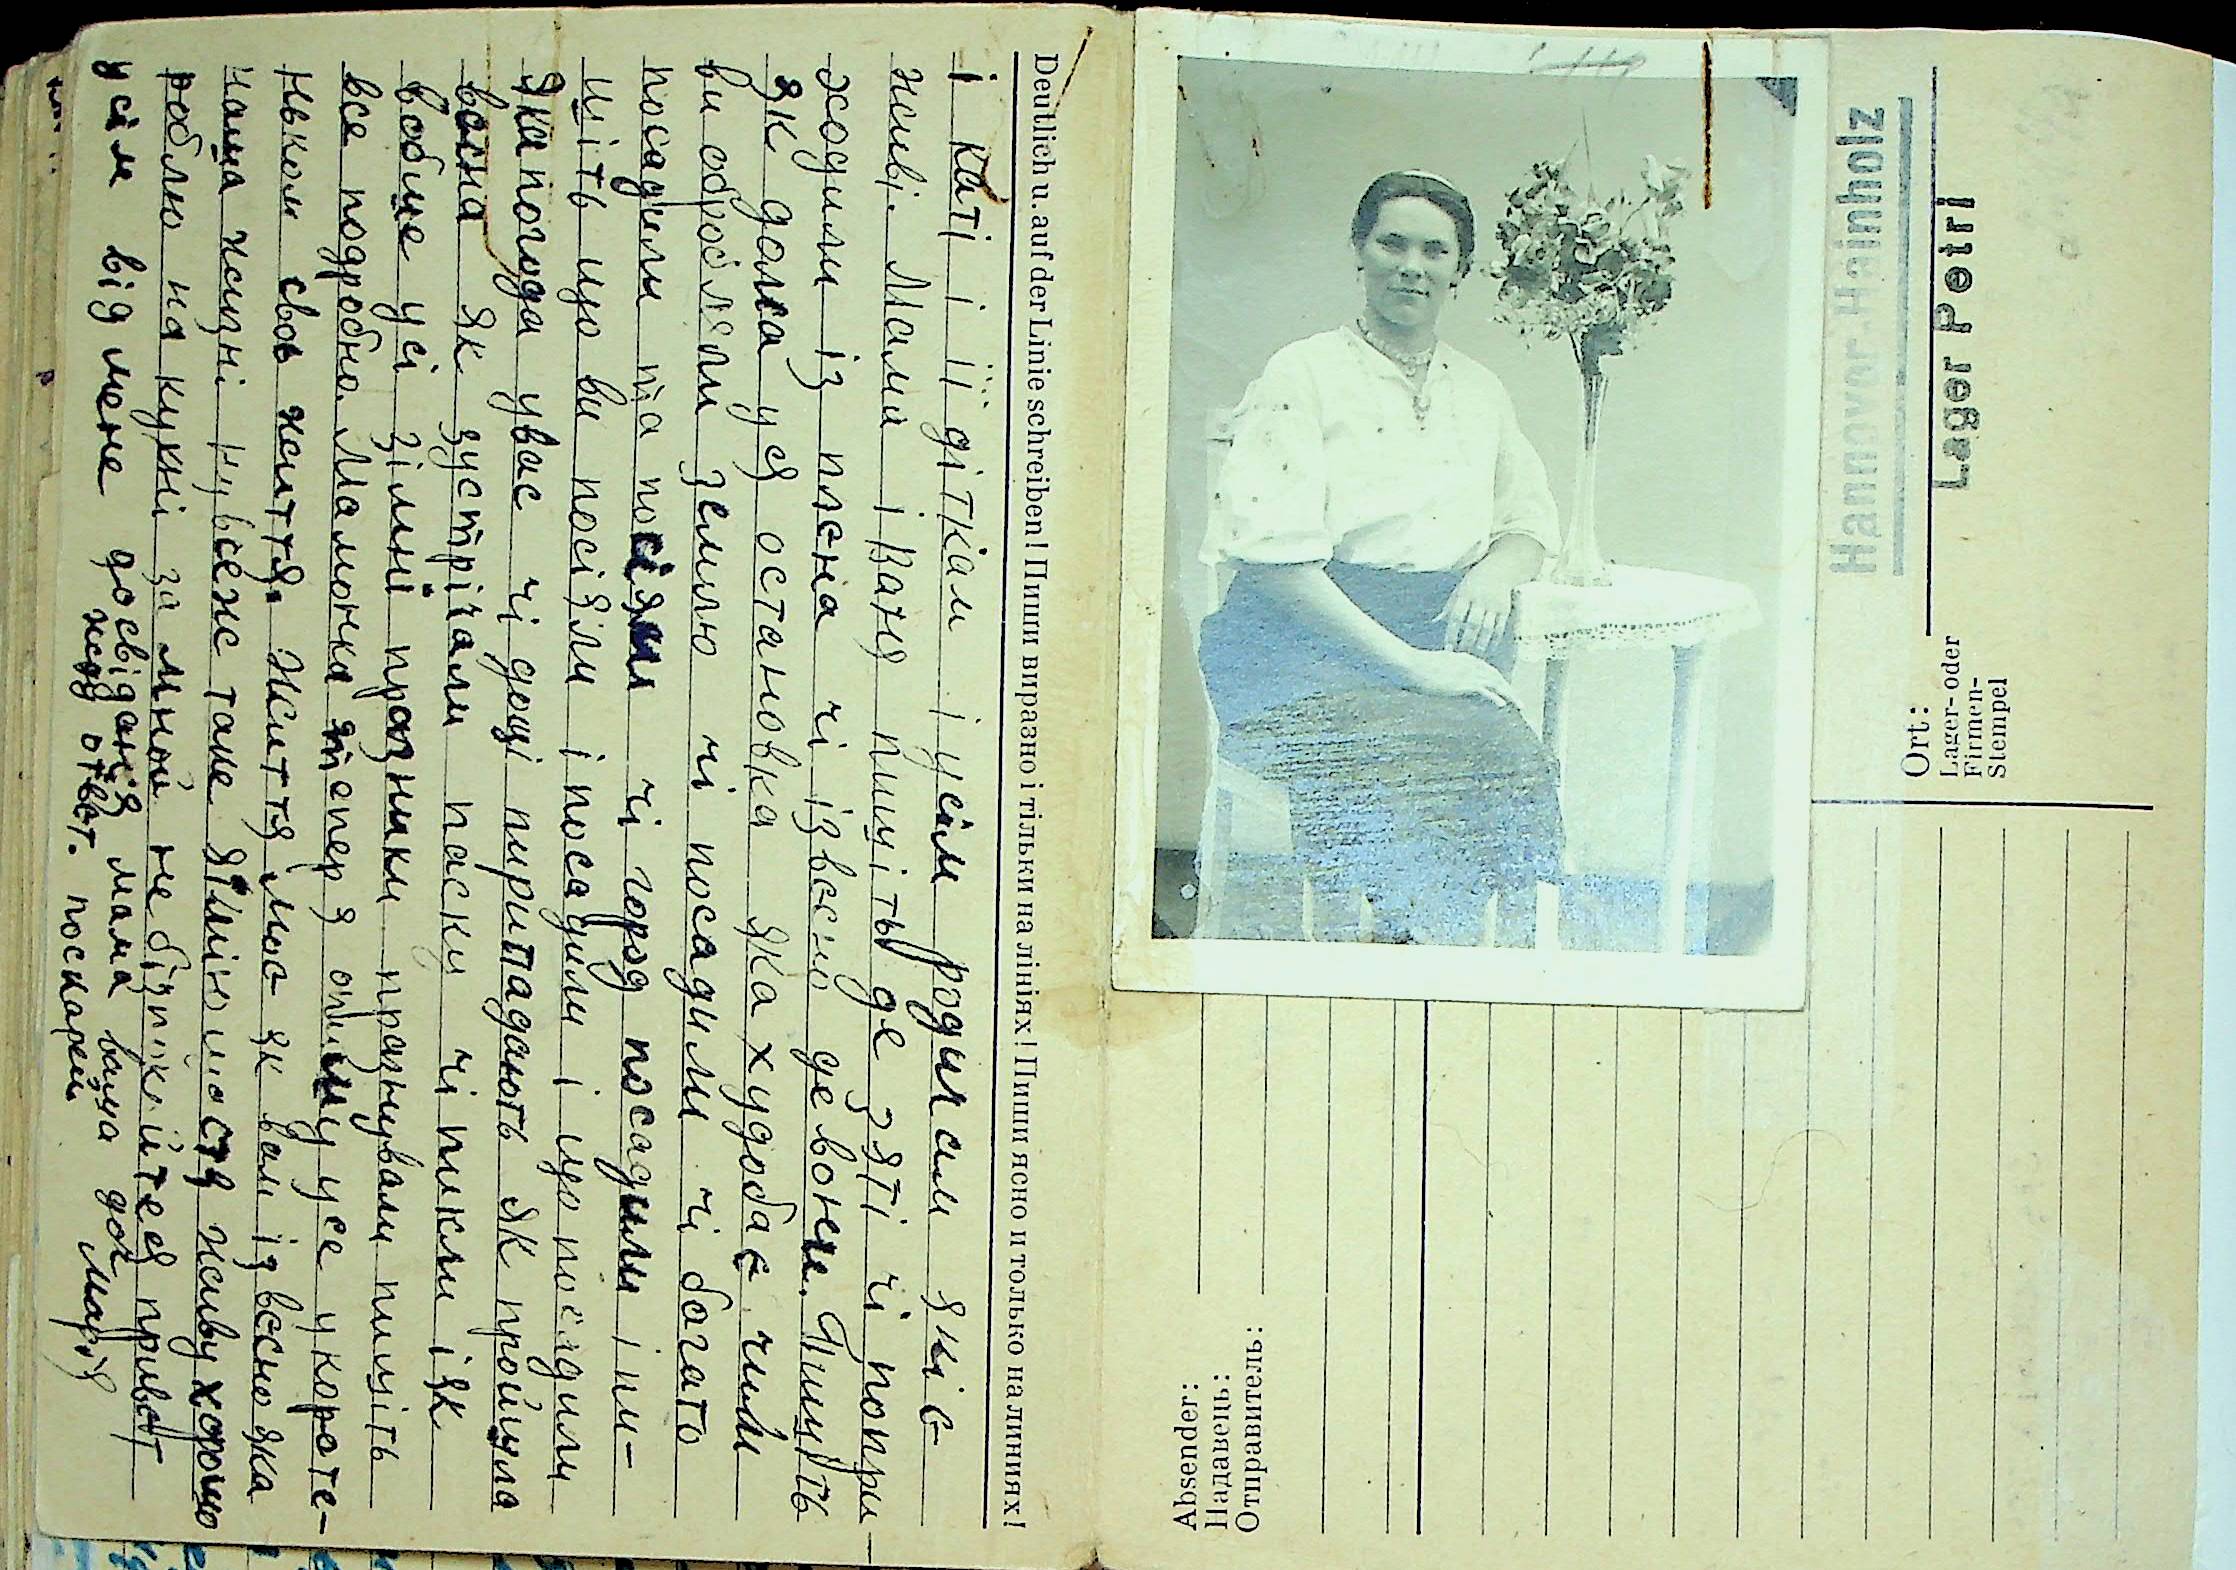 Deutlich u. auf der Linie schreiben! Пиши виразно і тільки на лініях! Пиши ясно и только на линиях!
і каті і її діткам і усім родичам які є
живі. Мамо і Ваня пишіть де зяті чі попри-
ходили із плєна чі ізвєсно де вони. Пишіть
як дома уся остановка яка худоба є чим
ви обробляли землю чі посадили чі багато
посадили та посіяли чі город посадили і пи-
шіть що ви посіяли і посадили і що посадили
яка погода у вас чі дощі пирипадають як пройшла
вєсна як зустрічали паску чі пикли і як
вобще усі зімні празники празнували пишіть
все подробно. Мамонка тепер я опишу усе укороте-
ньком своє життя. Життя моє як вам ізвєсно яка
наша жизні ну всеж таке я живу хорошо
роблю на кухні за мной не бізпокойтеся привєт
усім від мене до свіданія мама ваша доч Марія
жду отвєт. поскарей
Absender:
Надавець:
Отправитель:
Ort:
Lager- oder
Firmen-
Stempel
Hannover-Hainholz
Lager Petri